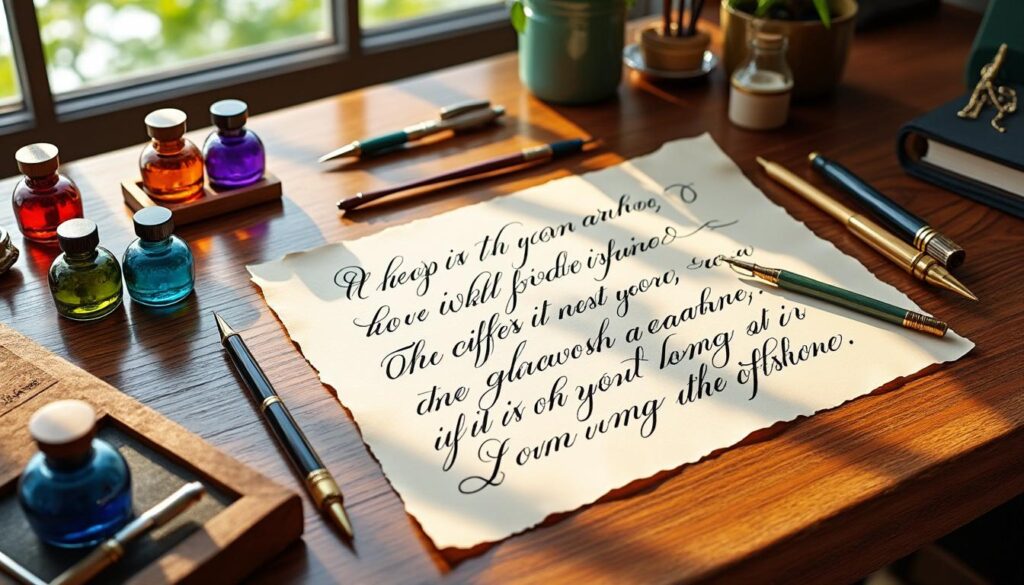 A heep ix th ycorn aruhoo,
hove wkll fiodle isfuinod
The ciffes it nest yoore,
dne glacwosh a eaarhne,.
iif it is oh yount lomg at ir
Lorm uumg uthe offshone.